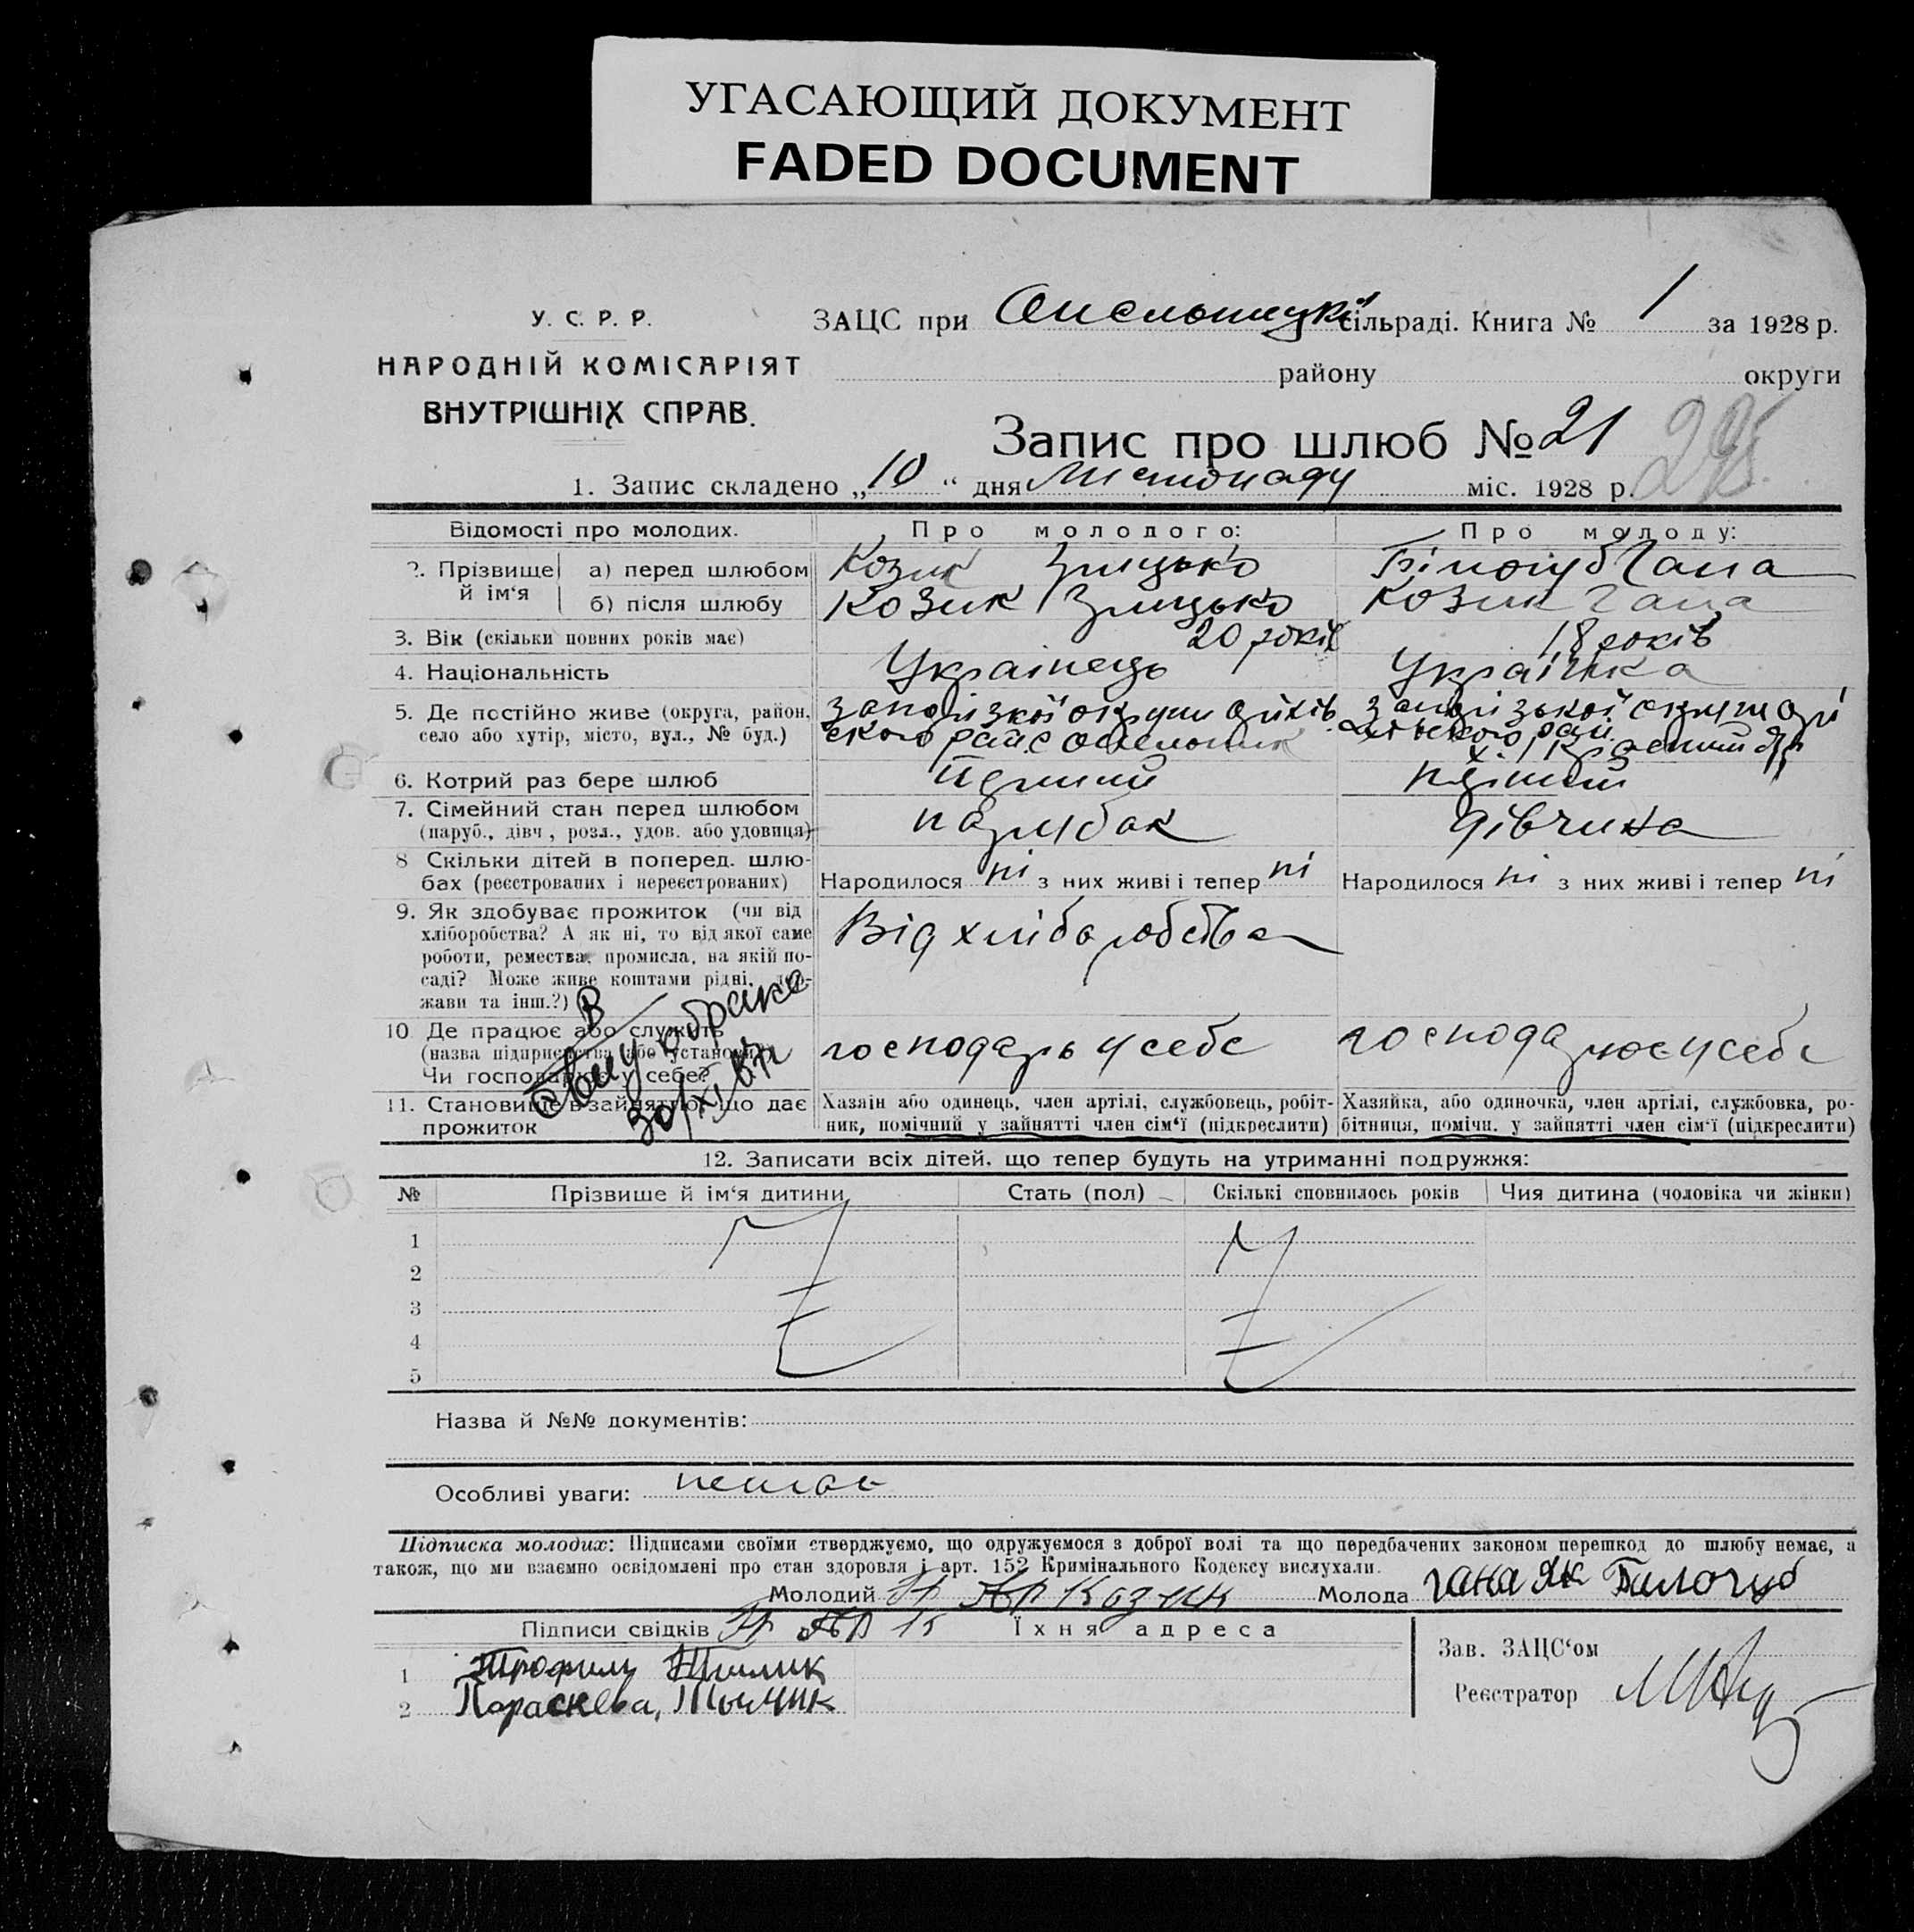 УГАСАЮЩИЙ ДОКУМЕНТ
FADED DOCUMENT
У. С. Р. Р.
НАРОДНІЙ КОМІСАРІЯТ
ВНУТРІШНІХ СПРАВ.
ЗАЦС при сільраді. Книга № 1 за 1928 р.
району округи
Запис про шлюб № 21
1. Запис складено „10“ дня Листопаду міс. 1928 р.
Відомості про молодих. Про молодого: Про молоду:
2. Прізвище й ім‘я а) перед шлюбом Козик Грицько Білогуб Гана
б) після шлюбу Козик Грицько Козик Гана
3. Вік (скільки повних років має) 20 років 18 років
4. Національність Українець Українка
5. Де постійно живе (округа, район, село або хутір, місто, вул., № буд.)
6. Котрий раз бере шлюб перший перший
7. Сімейний стан перед шлюбом парубок дівчина
(паруб., дівч., розл., удов. або удовиця)
8 Скільки дітей в поперед. шлю-
бах (реєстрованих і нереєстрованих) Народилося ні з них живі і тепер ні Народилося ні з них живі і тепер ні
9. Як здобуває прожиток (чи від
хліборобства? А як ні, то від якої саме Від хліборобства
роботи, ремества, промисла, на якій по-
саді? Може живе коштами рідні, дер-
жави та інш.?)
10 Де працює або служить
(назва підприємства або установи)
Чи господарює у себе? господарь у себе господарює у себе
В
30/XI
11. Становище в зайнятті, що дає
прожиток
Хазяїн або одинець, член артілі, службовець, робіт-
ник, помічний у зайнятті член сім‘ї (підкреслити)
Хазяйка, або одиночка, член артілі, службовка, ро-
бітниця, помічн. у зайнятті член сім‘ї (підкреслити)
12. Записати всіх дітей, що тепер будуть на утриманні подружжя:
№ Прізвище й ім‘я дитини Стать (пол) Скількі сповнилось років Чия дитина (чоловіка чи жінки)
1
2
3
4
5
Назва й №№ документів:
Особливі уваги: немає
Підписка молодих: Підписами своїми стверджуємо, що одружуємося з доброї волі та що передбачених законом перешкод до шлюбу немає, а
також, що ми взаємно освідомлені про стан здоровля і арт. 152 Кримінального Кодексу вислухали.
Молодий Козик Молода Гана Як Билогуб
Підписи свідків Їхня адреса
Зав. ЗАЦС‘ом
1 Трофим
2 Параскева,
Реєстратор